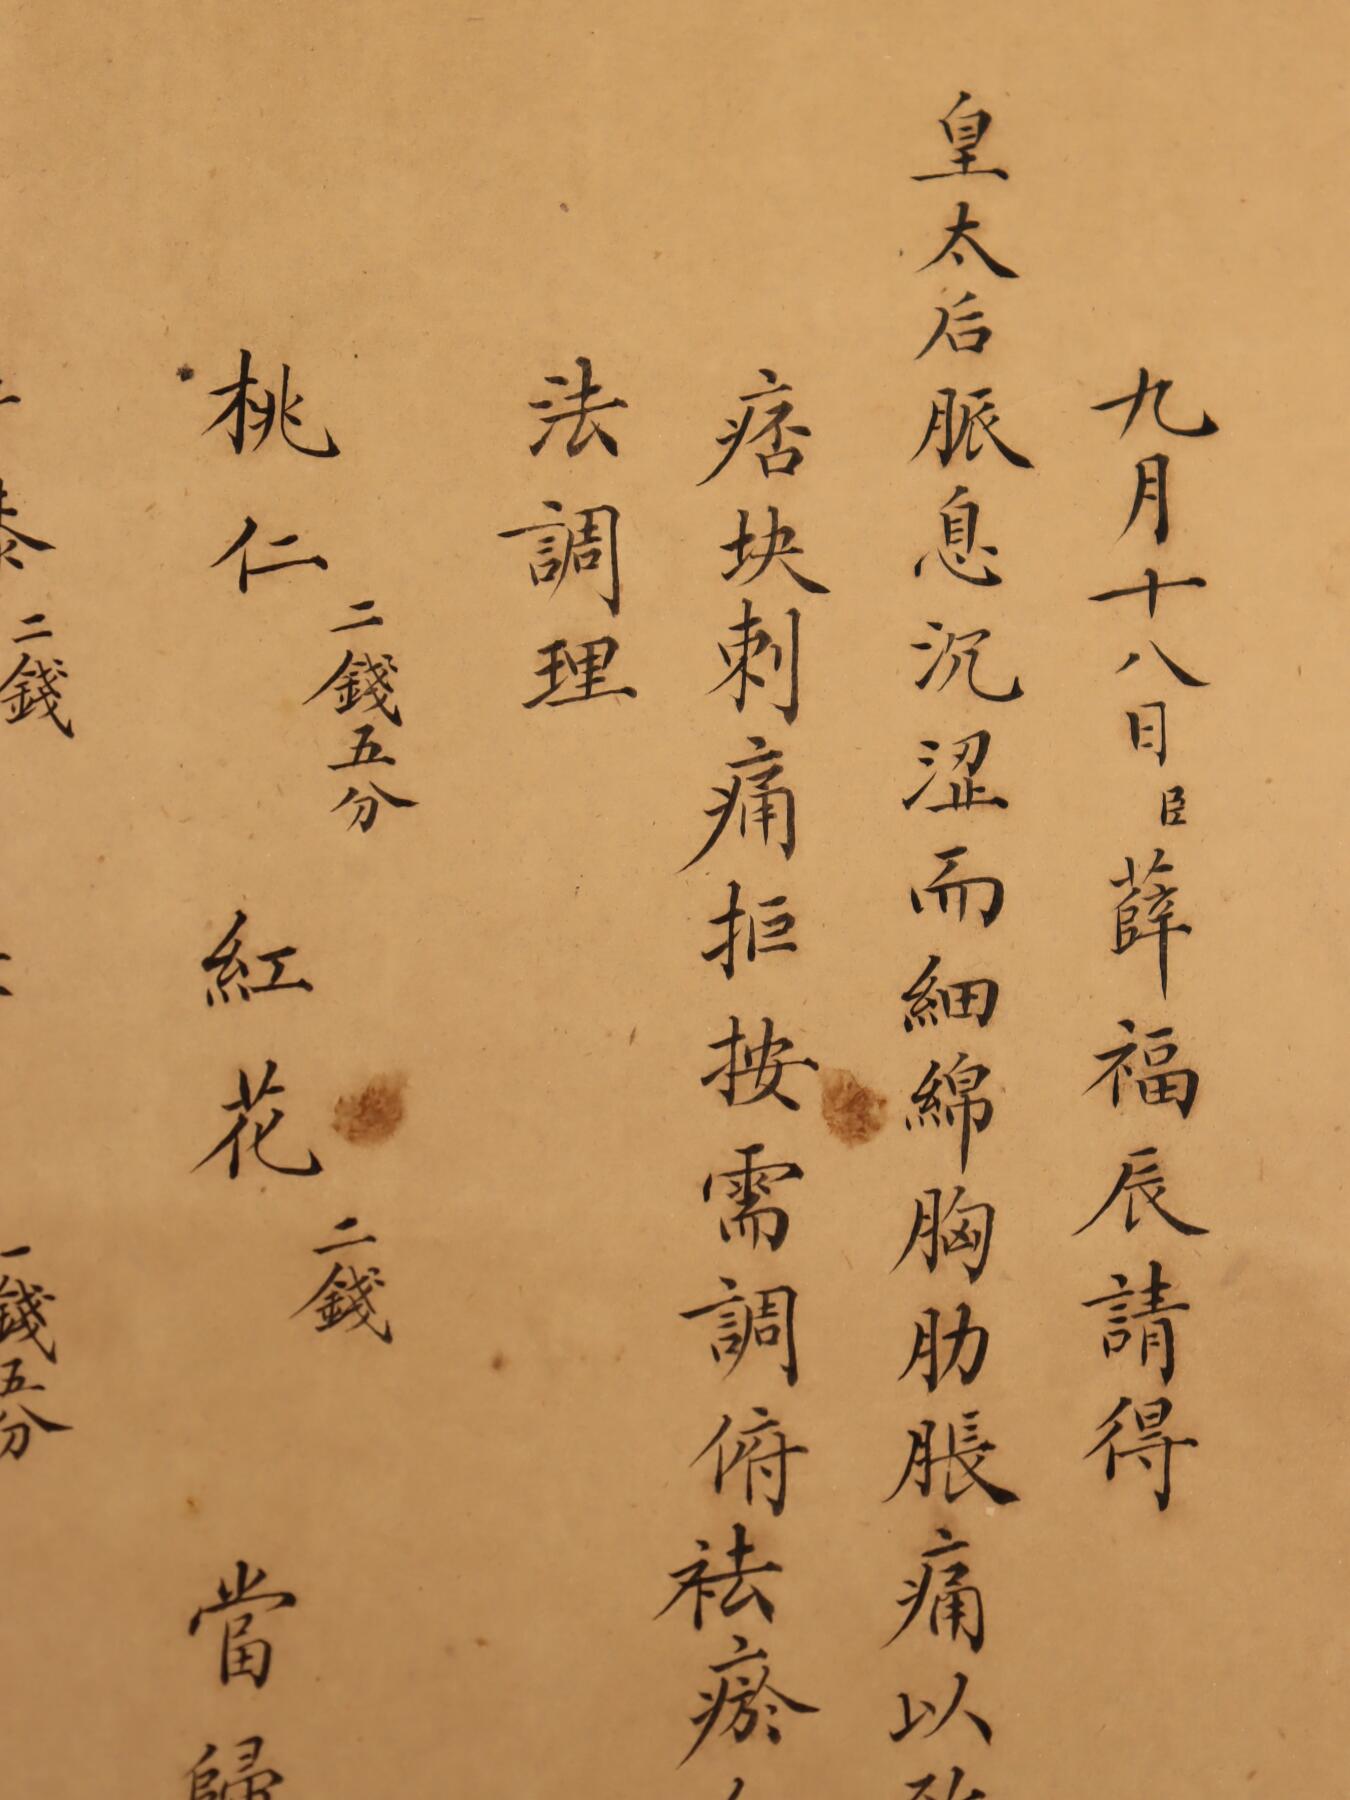 九月十八日臣薛福辰請得
皇太后脈息沉澀而細綿胸肋脹痛以致
痞块刺痛拒按需調俯祛瘀
法調理
桃仁二錢五分 紅花二錢 當歸
二錢 一錢五分